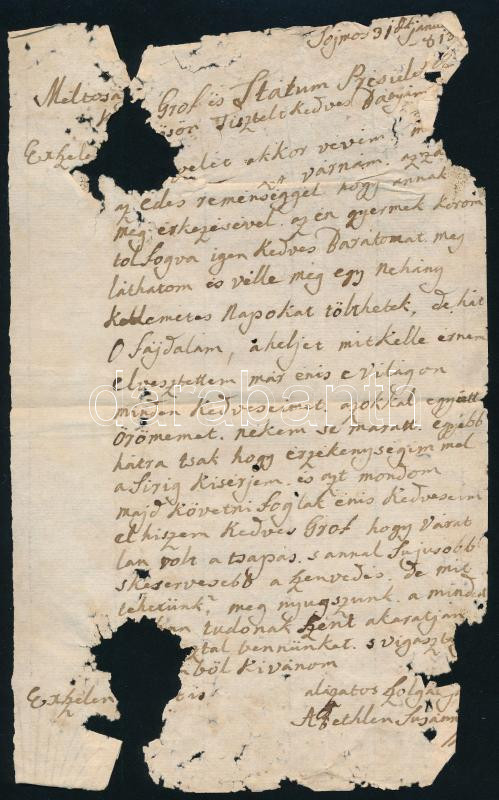 Sojmos 31dik janu
813
Meltosá Grof és Statum Presides
Tisztelt kedves Batyám
Exzele velét akkor vevém
várnám
az édes reménséggel hogy annak
meg érkezésével az én gyermek korom
tol fogva igen kedves Barátomat meg
láthatom és vélle még egy néhány
kellemetes Napokat tölthetek, de hát
O fájdalam, a heljet mit kelle érnem
elvesztettem már énis e világon
minden kedveseimet azokkal együtt
örömemet. nékem se maratt egyébb
hátra tsak hogy érzékenységim mel
a sirig kisérjem. és azt mondom
majd követni foglak énis kedveseim
el hiszem kedves Grof hogy várat
lan volt a tsapás. s annal sujosobb
s keservesebb a szenvedés. de mit
tehetünk? meg nyugszunk a mindent
tudonak szent akaratján
bennünket. s vigaszta
ból kivánom
Exzelen tis
alázatos szolgá
Bethlen Susánn
darabanth